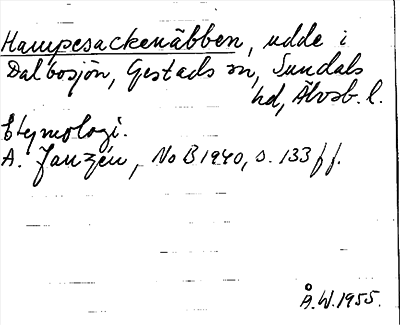 Hampesackenäbben, udde i
Dalbosjön, Gestads sn, Sundals
hd, Älvsb. l.
Etymologi.
A. Janzén, NoB 1940, s. 133 ff.
Å.W. 1955.